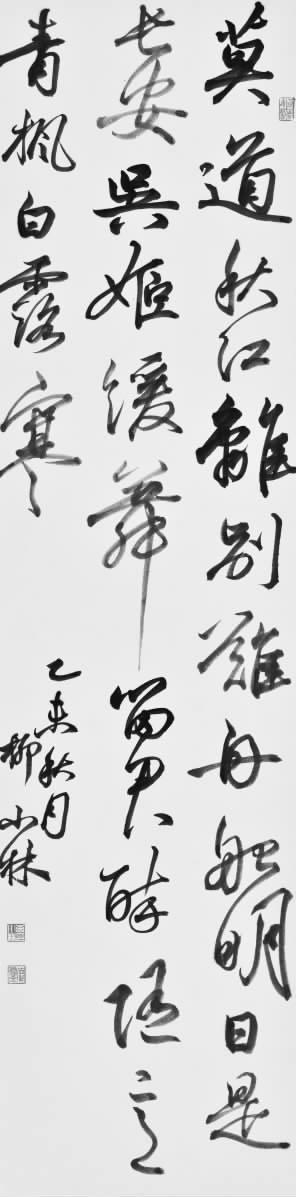 莫道秋江離別難舟船明日是
長安吳姬緩舞留君醉隨意
青楓白露寒
乙未秋月
柳小林